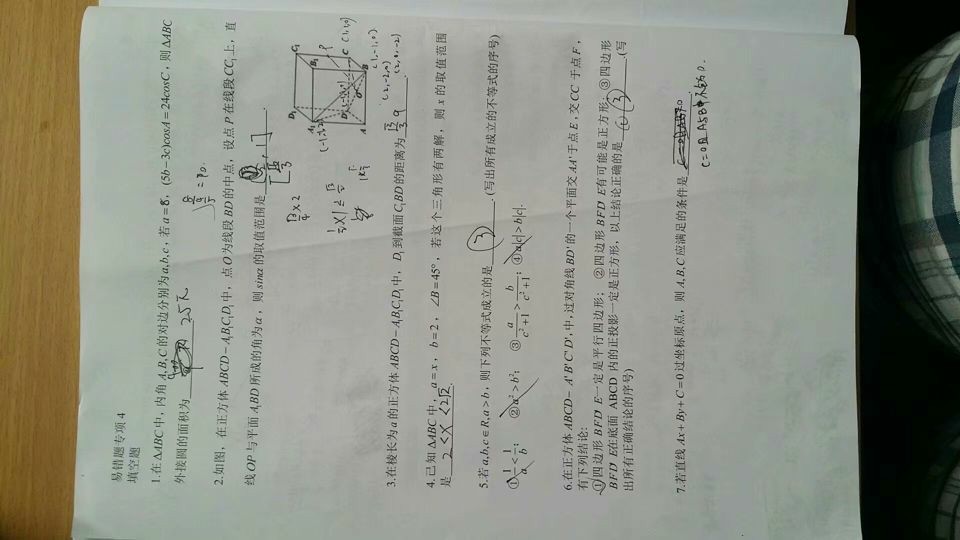 易错题专项 4
填空题
1.在△ABC中，内角 A,B,C 的对边分别为 a,b,c，若 a=8，(5b-3c)cosA=24cosC，则△ABC
外接圆的面积为 25π .
2.如图，在正方体 ABCD-A₁B₁C₁D₁ 中，点 O 为线段 BD 的中点，设点 P 在线段 CC₁ 上，直
线 OP 与平面 A₁BD 所成的角为 α，则 sinα 的取值范围是
C₁
B₁
P
D₁
A₁
C
B
O
A
(-2,0,-2)
3.在棱长为 a 的正方体 ABCD-A₁B₁C₁D₁ 中，D₁ 到截面 C₁BD 的距离为 √3/3 a
4.已知△ABC 中，a=x，b=2，∠B=45°，若这个三角形有两解，则 x 的取值范围
是 2<x<2√2 .
5.若 a,b,c∈R,a>b，则下列不等式成立的是 (3) .(写出所有成立的不等式的序号)
① 1/a<1/b；②a²>b²；③ a/(c²+1)>b/(c²+1)；④a|c|>b|c|.
6.在正方体 ABCD-A'B'C'D'中,过对角线 BD'的一个平面交 AA'于点 E,交 CC'于点 F，
有下列结论:
①四边形 BFD'E 一定是平行四边形；②四边形 BFD'E 有可能是正方形；③四边形
BFD'E 在底面 ABCD 内的正投影一定是正方形，以上结论正确的是 (1)(3) .(写
出所有正确结论的序号)
7.若直线 Ax+By+C=0 过坐标原点，则 A,B,C 应满足的条件是
C=0且A与B不全为0.